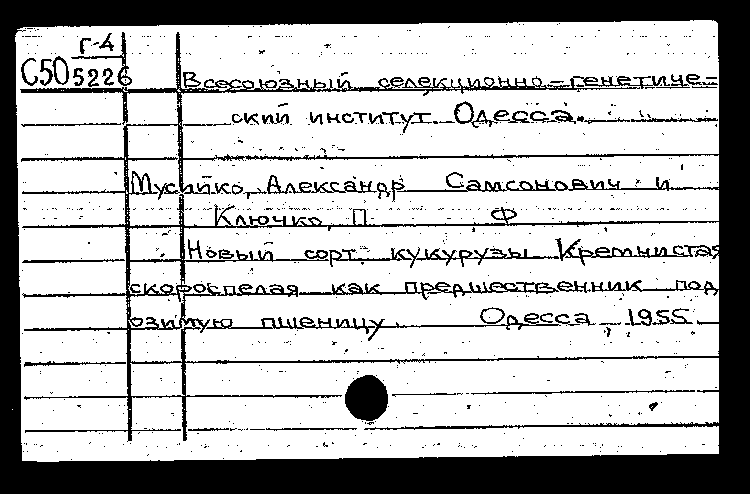 Г-4
С50 5226
Всесоюзный селекционно-генетиче-
ский институт. Одесса.
Мусийко, Александр Самсонович и
Ключко, П Ф
Новый сорт кукурузы Кремнистая
скороспелая как предшественник под
озимую пшеницу. Одесса, 1955.